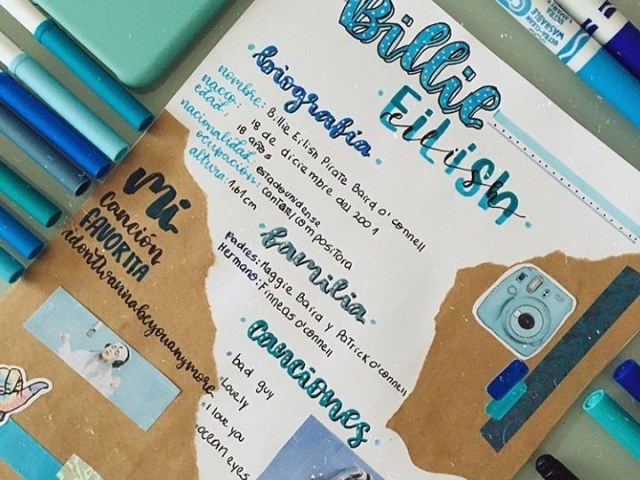 Billie
EiLiSH
eilish
biografia
nombre: Billie Eilish Pirate Baird o'connell
nacco: 18 de diciembre del 2001
edad: 18 años
nacionalidad: estadounidense
ocupación: cantar/compositora
altura: 1.61cm
familia
Padres: Maggie Baird y Patrick o'connell
Hermano: Finneas o'connell
canciones
bad guy
Lovely
i love you
ocean eyes
Mi
canción
FAVORITA
idontwannabeyouanymore